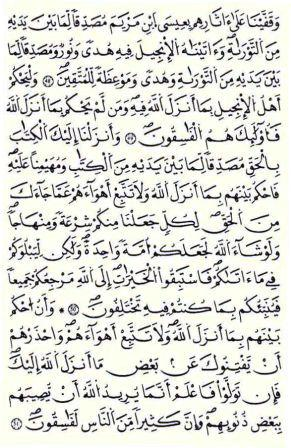 وَقَفَّيْنَا عَلَىٰٓ ءَاثَٰرِهِم بِعِيسَى ٱبْنِ مَرْيَمَ مُصَدِّقًا لِّمَا بَيْنَ يَدَيْهِ
مِنَ ٱلتَّوْرَىٰةِ وَءَاتَيْنَٰهُ ٱلْإِنجِيلَ فِيهِ هُدًى وَنُورٌ وَمُصَدِّقًا لِّمَا
بَيْنَ يَدَيْهِ مِنَ ٱلتَّوْرَىٰةِ وَهُدًى وَمَوْعِظَةً لِّلْمُتَّقِينَ ۝٤٦ وَلْيَحْكُمْ
أَهْلُ ٱلْإِنجِيلِ بِمَآ أَنزَلَ ٱللَّهُ فِيهِ وَمَن لَّمْ يَحْكُم بِمَآ أَنزَلَ ٱللَّهُ
فَأُو۟لَٰٓئِكَ هُمُ ٱلْفَٰسِقُونَ ۝٤٧ وَأَنزَلْنَآ إِلَيْكَ ٱلْكِتَٰبَ
بِٱلْحَقِّ مُصَدِّقًا لِّمَا بَيْنَ يَدَيْهِ مِنَ ٱلْكِتَٰبِ وَمُهَيْمِنًا عَلَيْهِ
فَٱحْكُم بَيْنَهُم بِمَآ أَنزَلَ ٱللَّهُ وَلَا تَتَّبِعْ أَهْوَآءَهُمْ عَمَّا جَآءَكَ
مِنَ ٱلْحَقِّ لِكُلٍّ جَعَلْنَا مِنكُمْ شِرْعَةً وَمِنْهَاجًا
وَلَوْ شَآءَ ٱللَّهُ لَجَعَلَكُمْ أُمَّةً وَٰحِدَةً وَلَٰكِن لِّيَبْلُوَكُمْ
فِى مَآ ءَاتَىٰكُمْ فَٱسْتَبِقُوا۟ ٱلْخَيْرَٰتِ إِلَى ٱللَّهِ مَرْجِعُكُمْ جَمِيعًا
فَيُنَبِّئُكُم بِمَا كُنتُمْ فِيهِ تَخْتَلِفُونَ ۝٤٨ ۞ وَأَنِ ٱحْكُم
بَيْنَهُم بِمَآ أَنزَلَ ٱللَّهُ وَلَا تَتَّبِعْ أَهْوَآءَهُمْ وَٱحْذَرْهُمْ
أَن يَفْتِنُوكَ عَنۢ بَعْضِ مَآ أَنزَلَ ٱللَّهُ إِلَيْكَ
فَإِن تَوَلَّوْا۟ فَٱعْلَمْ أَنَّمَا يُرِيدُ ٱللَّهُ أَن يُصِيبَهُم
بِبَعْضِ ذُنُوبِهِمْ وَإِنَّ كَثِيرًا مِّنَ ٱلنَّاسِ لَفَٰسِقُونَ ۝٤٩